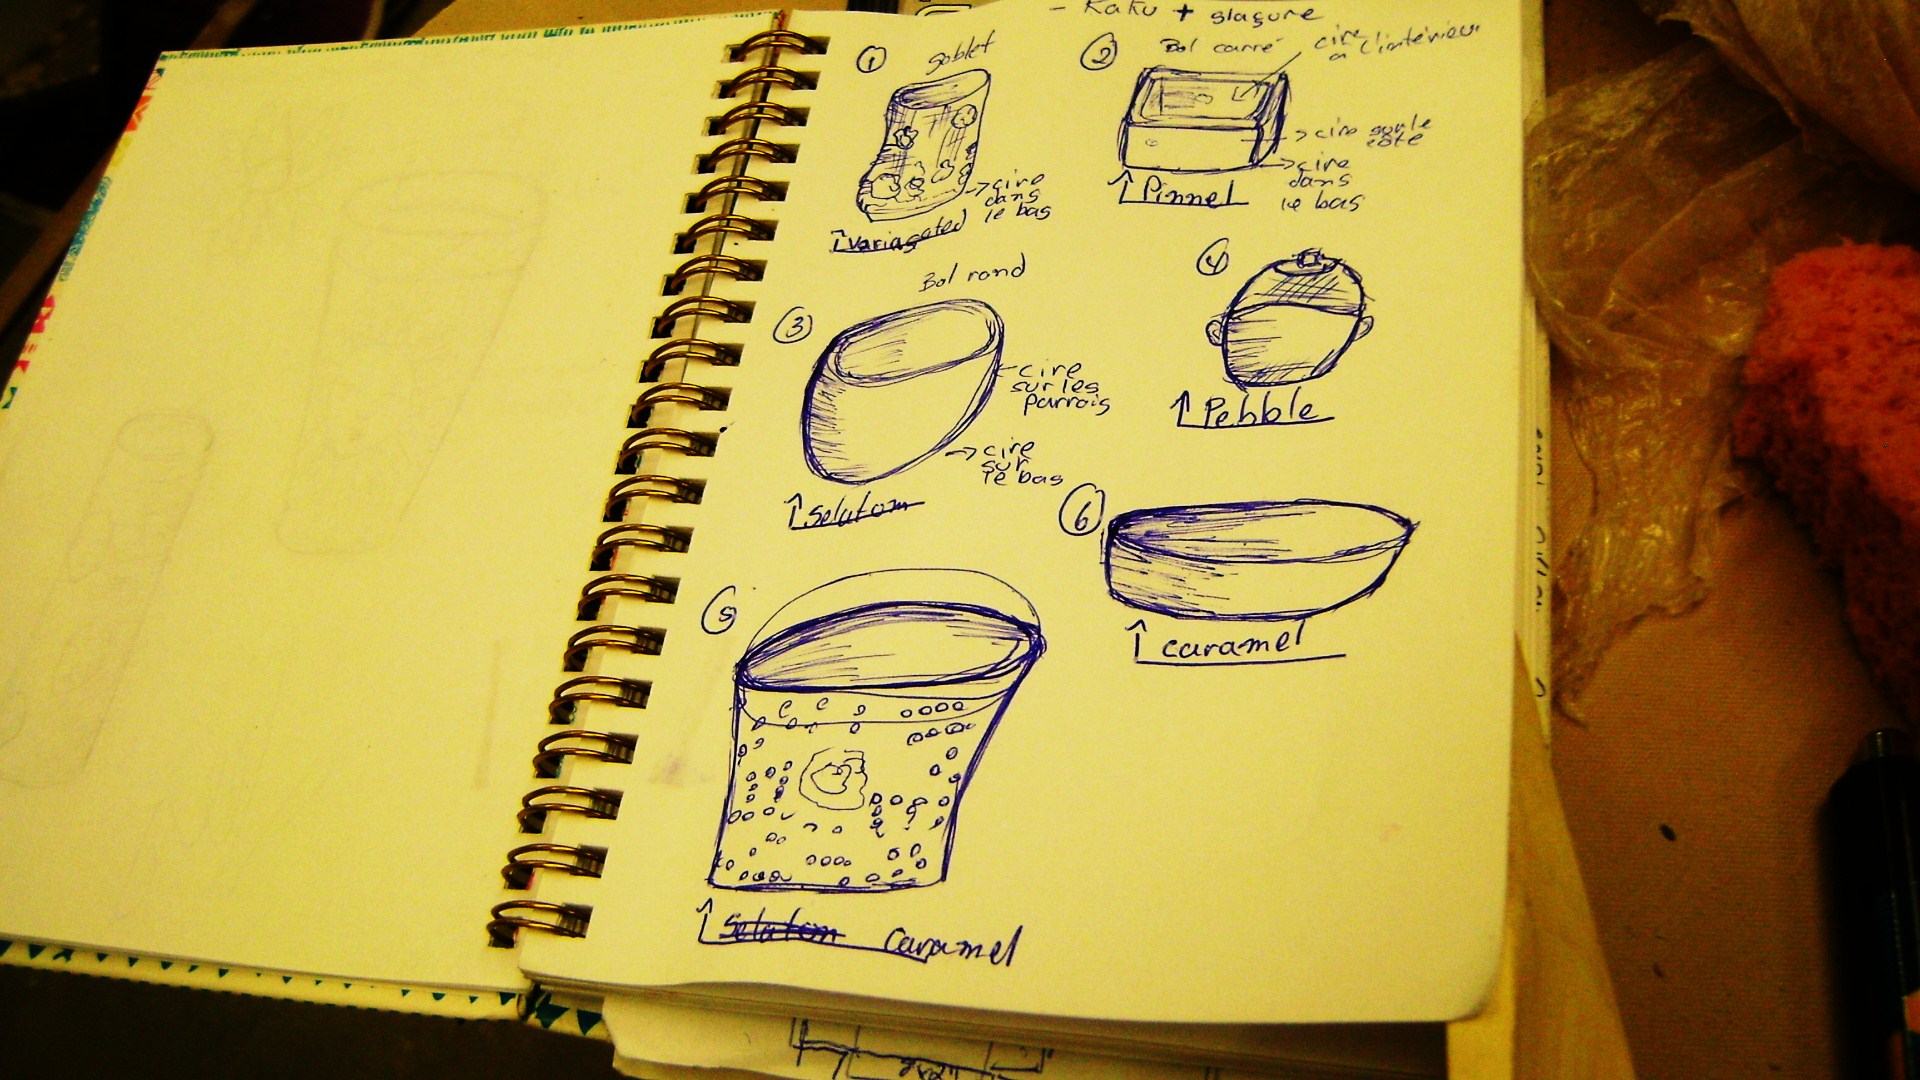 - Raku + glaçure
① goblet
→ cire
dans
le bas
↑ Variagated
② Bol carré
cire
a l'intérieur
→ cire sur le
côté
→ cire
dans
le bas
↑ Pinnel
Bol rond
③
← cire
sur les
parrois
→ cire
sur
le bas
↑
④
↑ Pebble
⑤
↑ Caramel
⑥
↑ caramel